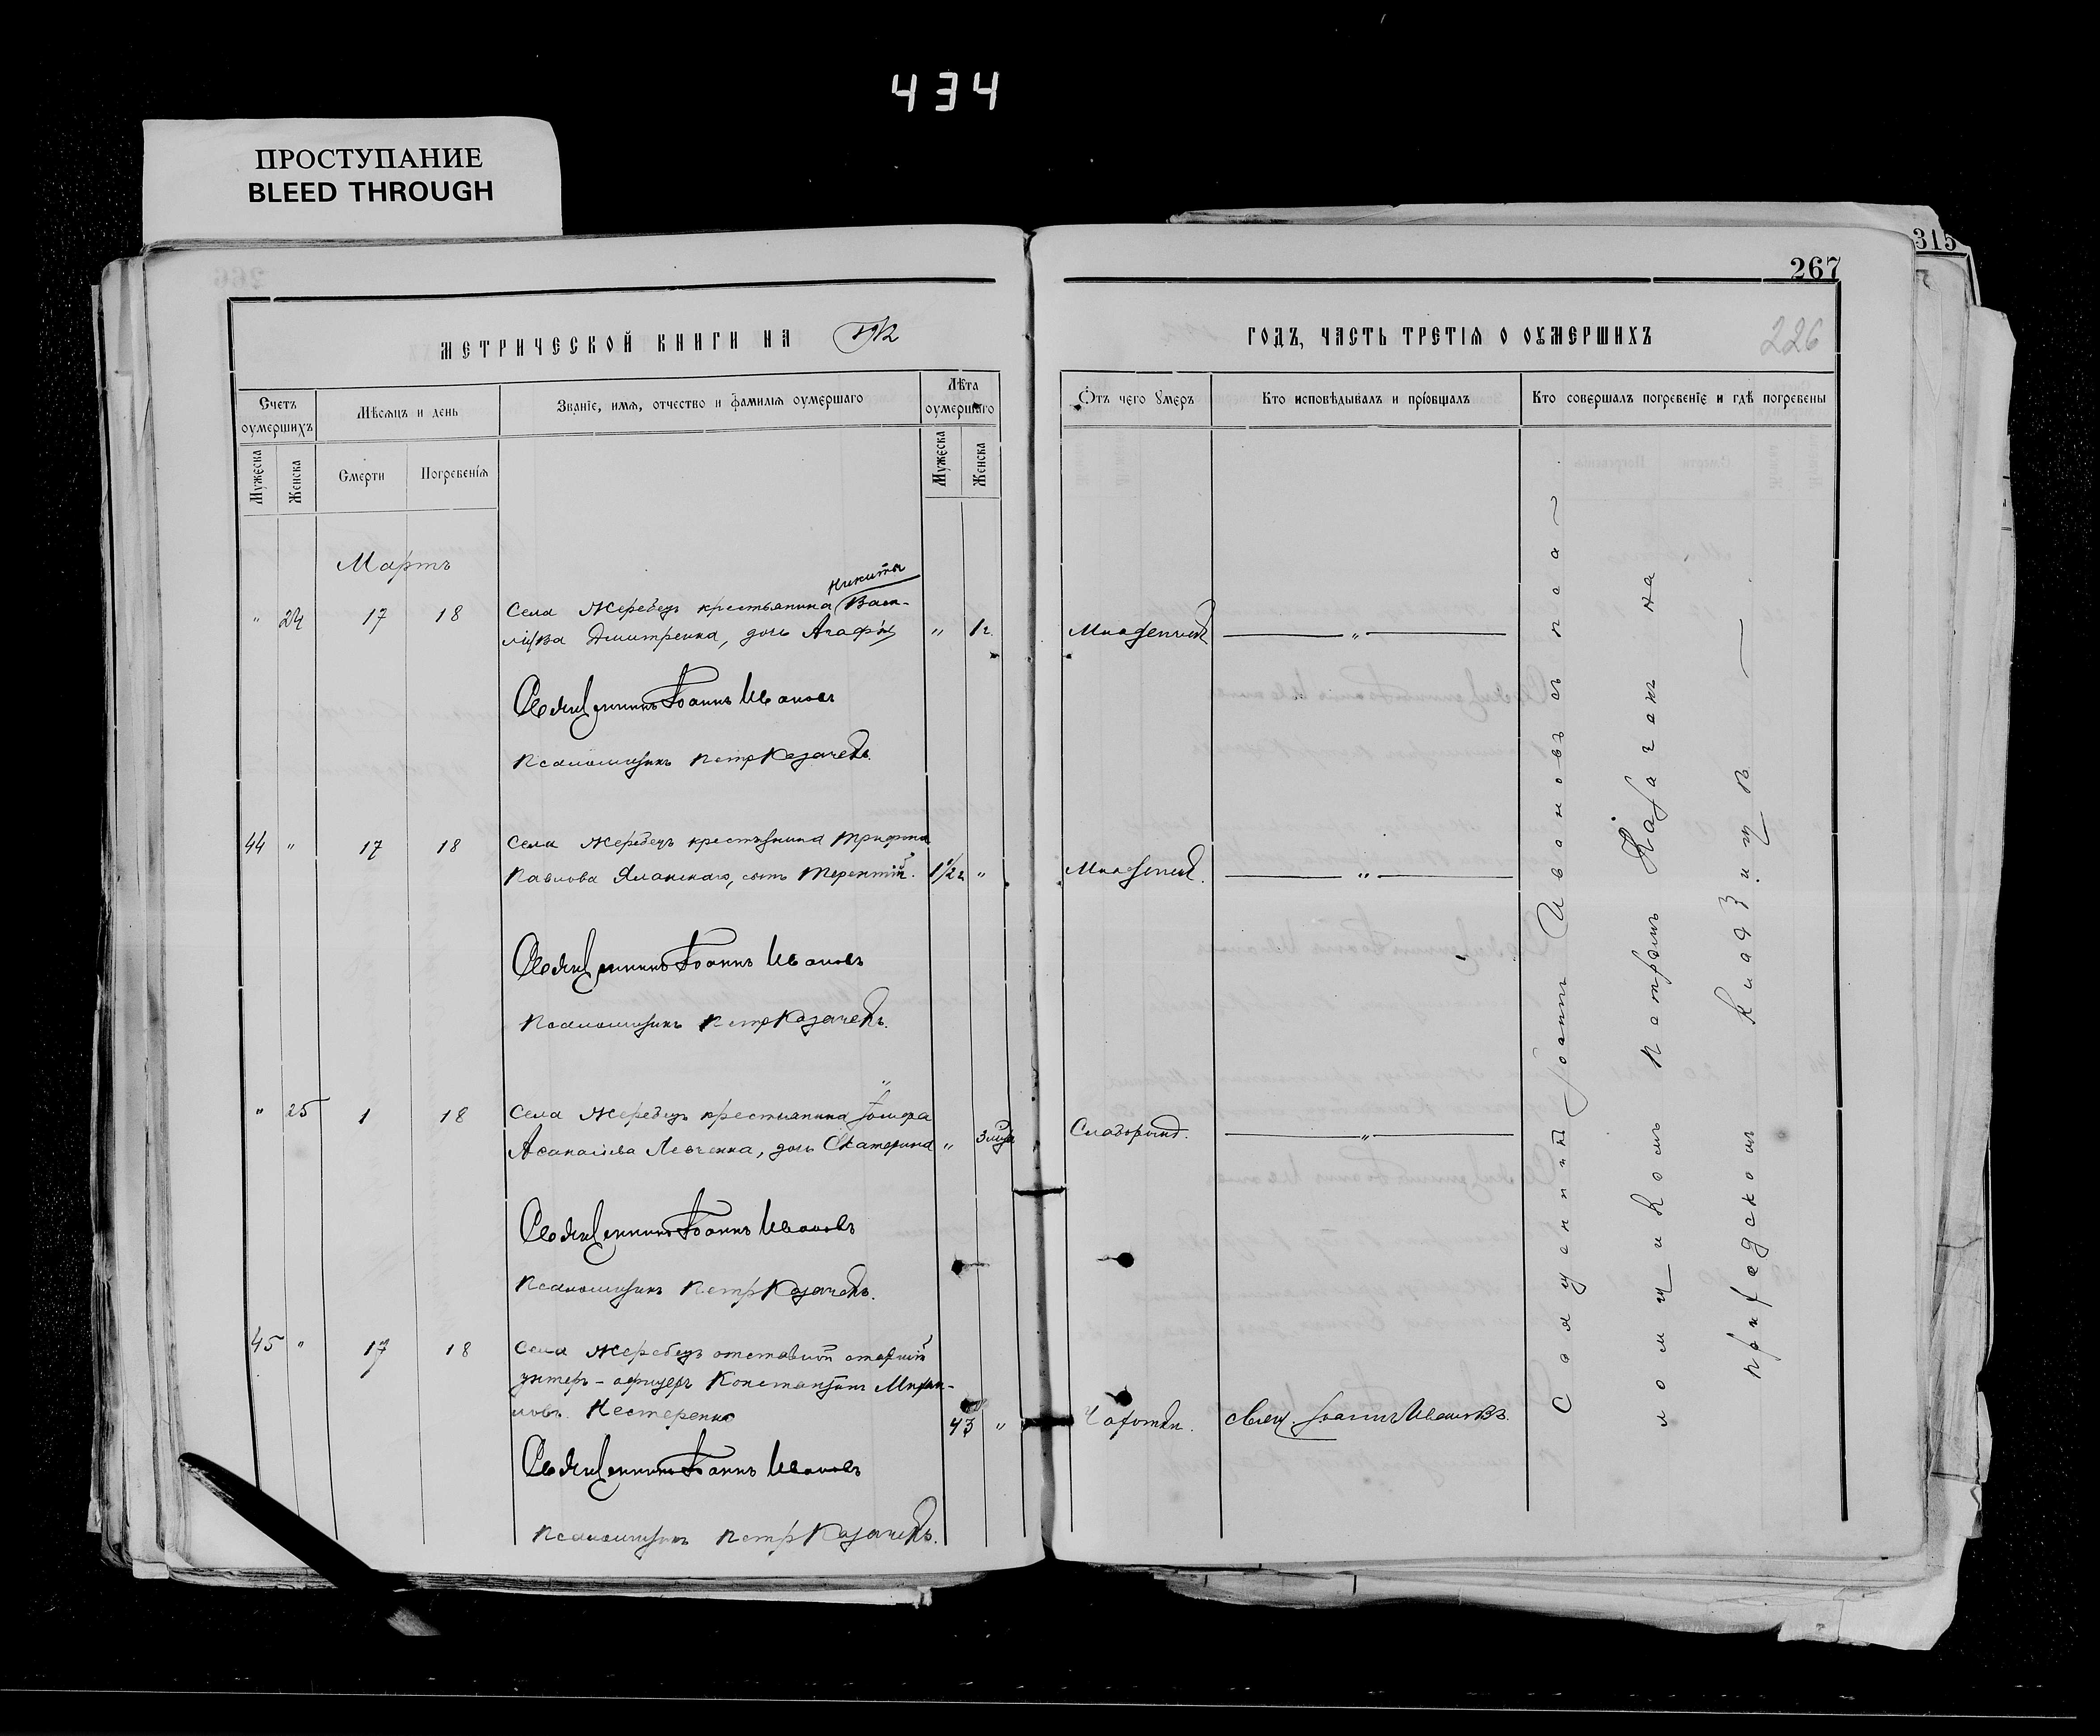 434
ПРОСТУПАНИЕ
BLEED THROUGH
315
267
226
МЕТРИЧЕСКОЙ КНИГИ НА 1912
ГОДЪ, ЧАСТЬ ТРЕТІЯ О ОУМЕРШИХЪ
Счетъ оумершихъ
Мѣсяцъ и день
Званіе, имя, отчество и фамилія оумершаго
Лѣта оумершаго
Отъ чего умеръ
Кто исповѣдывалъ и пріобщалъ
Кто совершалъ погребеніе и гдѣ погребены
Мужеска
Женска
Смерти
Погребенія
Мужеска
Женска
Мартъ
Никиты
" 24 17 18 Села Жеребецъ крестьянина Васи-
лiева Дмитренка, дочь Агафья " 1 г. Младенческ. "
Священникъ Іоаннъ Ивановъ
Псаломщикъ Петр Казачекъ.
44 " 17 18 Села Жеребецъ крестьянина Трифона
Павлова Яланскаго, сынъ Терентій. 1 1/2 г. " Младенческ. "
Священникъ Іоаннъ Ивановъ
Псаломщикъ Петр Казачекъ.
" 25 1 18 Села Жеребецъ крестьянина
Аѳанасіева Левченка, дочь Екатерина " 3 "
Священникъ Іоаннъ Ивановъ
Псаломщикъ Петр Казачекъ.
45 " 17 18 Села Жеребецъ отставной старшій
унтеръ-офицеръ Константинъ Михаи-
ловъ Нестеренко 43 " Чахотки. Свящ. Іоаннъ Ивановъ.
Священникъ Іоаннъ Ивановъ
Псаломщикъ Петр Казачекъ.
Священникъ Іоаннъ Ивановъ съ пса-
ломщикомъ Петромъ Казачекъ на
приходскомъ кладбищѣ